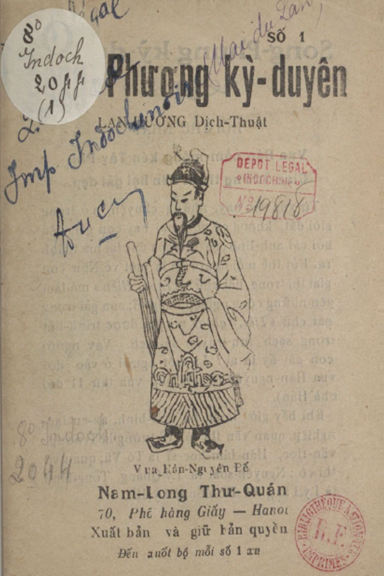 Số 1
Phượng kỳ-duyên
LAN-HƯƠNG Dịch-Thuật
8°
Indoch
2044
(1)
Imp Indochinoise
DEPOT LEGAL
INDOCHINE
N° 19818
8° Indoch
2044
Vua Hán-Nguyên Đế
Nam-Long Thư-Quán
70, Phố hàng Giấy — Hanoi
Xuất bản và giữ bản quyền
Đến xuốt bộ mỗi số 1 xu
BIBLIOTHÈQUE NATIONALE
R.F.
IMPRIMÉS